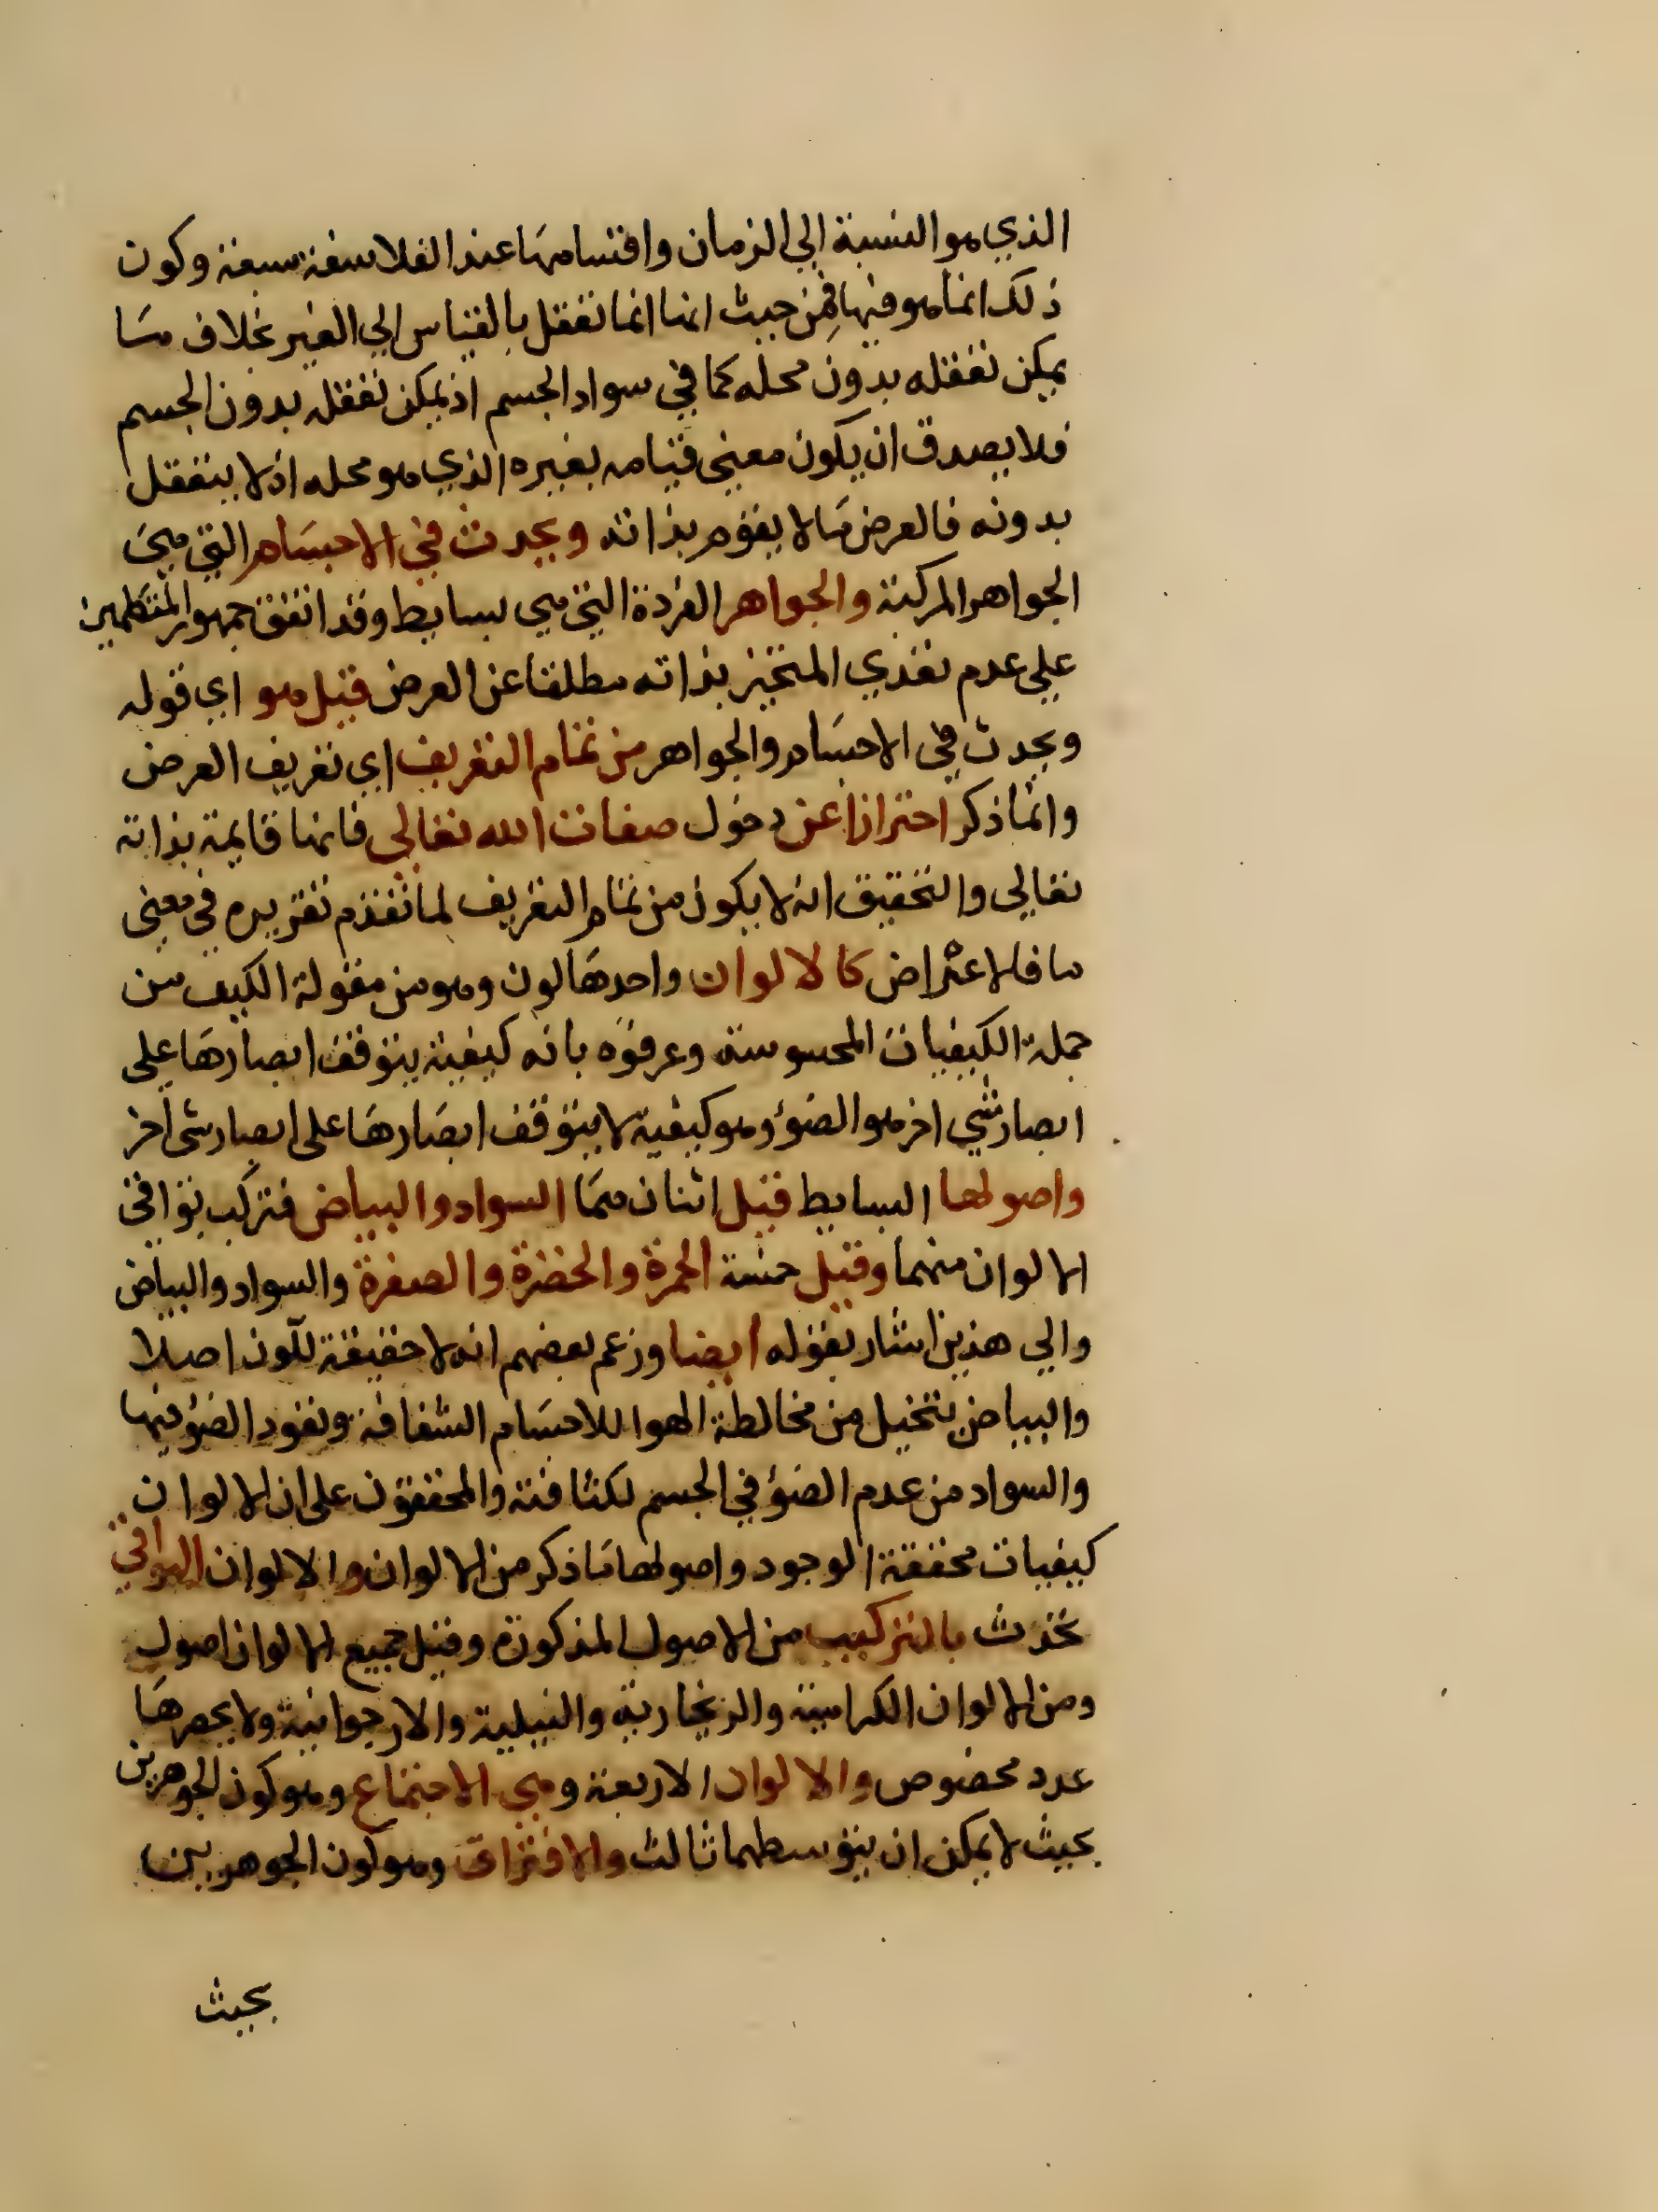 الذي هو النسبة الي الزمان واقسامها عند الفلاسفة سبعة وكون
ذلك انما هو فيها فمن حيث انها انما تعقل بالقياس الي الغير بخلاف ما
يمكن تعقله بدون محله كما في سواد الجسم اذ يمكن تعقله بدون الجسم
فلا يصدق ان يكون معني قيامه بغيره الذي هو محله اذ لا يتعقل
بدونه فالعرض ما لا يقوم بذاته ويحدث في الاجسام التي هي
الجواهر المركبة والجواهر الفردة التي هي بسايط وقد اتفق جمهور المتكلمين
علي عدم تعدي المتحيز بذاته مطلقا عن العرض قيل هو اي قوله
ويحدث في الاجسام والجواهر من تمام التعريف اي تعريف العرض
وانما ذكر احترازا عن دخول صفات الله تعالي فانها قايمة بذاته
تعالي والتحقيق انه لا يكون من تمام التعريف لما تقدم تقريره في معني
ما فالاعراض كالالوان واحدها لون وهو من مقولة الكيف من
جملة الكيفيات المحسوسة وعرفوه بانه كيفية يتوقف ابصارها علي
ابصار شي اخر هو الضوء وهو كيفية لا يتوقف ابصارها على ابصار شى اخر
واصولها البسايط قيل اثنان هما السواد والبياض فتركب بواقي
الالوان منهما وقيل خمسة الحمرة والخضرة والصفرة والسواد والبياض
والي هذين اشار بقوله ايضا وزعم بعضهم انه لا حقيقة للون اصلا
والبياض يتخيل من مخالطة الهوا للاجسام الشفافة ونفود الضوء فيها
والسواد من عدم الضوء في الجسم لكثافته والمحققون على ان الالوان
كيفيات محققة الوجود واصولها ما ذكر من الالوان والالوان البواقي
تحدث بالتركيب من الاصول المذكورة وقيل جميع الالوان اصول
ومن الالوان الكراسية والزنجارية والنيلية والارجوانية ولا يحصرها
عدد مخصوص والالوان الاربعة وهي الاجتماع وهو كون الجوهرين
بحيث لا يمكن ان يتوسطهما ثالث والافتراق وهو كون الجوهرين
بحيث